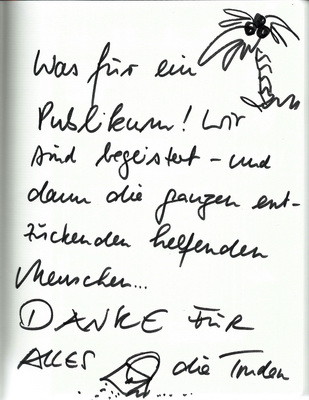 Was für ein
Publikum! Wir
sind begeistert – und
dann die ganzen ent-
zückenden helfenden
Menschen...
DANKE FÜR
ALLES die